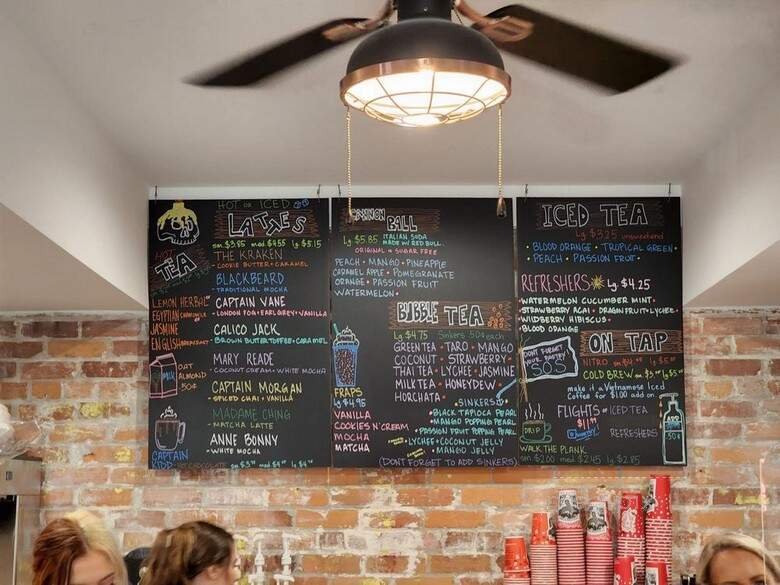 HOT or ICED
LATTES
sm $3.95 med $4.55 lg $5.15
THE KRAKEN
COOKIE BUTTER • CARAMEL
BLACKBEARD
TRADITIONAL MOCHA
CAPTAIN VANE
LONDON FOG • EARL GREY • VANILLA
CALICO JACK
BROWN BUTTER TOFFEE • CARAMEL
MARY READE
COCONUT CREAM • WHITE MOCHA
CAPTAIN MORGAN
SPICED CHAI • VANILLA
MADAME CHING
MATCHA LATTE
ANNE BONNY
WHITE MOCHA
HOT
TEA
LEMON HERBAL
EGYPTIAN CHAMOMILE
JASMINE
ENGLISH BREAKFAST
OAT
ALMOND
50¢
CAPTAIN
KIDD
HOT CHOCOLATE
CANNON
BALL
lg $5.85 ITALIAN SODA
MADE W/ RED BULL
ORIGINAL or SUGAR FREE
PEACH • MANGO • PINEAPPLE
CARAMEL APPLE • POMEGRANATE
ORANGE • PASSION FRUIT
WATERMELON •
BUBBLE TEA
lg $4.75 Sinkers 50¢ each
GREEN TEA • TARO • MANGO
COCONUT • STRAWBERRY
THAI TEA • LYCHEE • JASMINE
MILK TEA • HONEYDEW •
HORCHATA •
• SINKERS •
• BLACK TAPIOCA PEARL
• MANGO POPPING PEARL
• PASSION FRUIT POPPING PEARL
• LYCHEE • COCONUT JELLY
• MANGO JELLY
(DON'T FORGET TO ADD SINKERS)
FRAPS
lg $4.95
VANILLA
COOKIES N' CREAM
MOCHA
MATCHA
ICED TEA
lg $3.25 unsweetened
• BLOOD ORANGE • TROPICAL GREEN •
PEACH • PASSION FRUIT •
REFRESHERS lg $4.25
• WATERMELON CUCUMBER MINT •
STRAWBERRY ACAI • DRAGON FRUIT • LYCHEE •
WILDBERRY HIBISCUS •
• BLOOD ORANGE
DON'T FORGET
YOUR PASTRY
SOS
ON TAP
NITRO
COLD BREW
make it a Vietnamese Iced
Coffee for $1.00 add on.
FLIGHTS • ICED TEA
REFRESHERS
DRIP
WALK THE PLANK
sm $2.00 med $2.45 lg $2.85
50¢